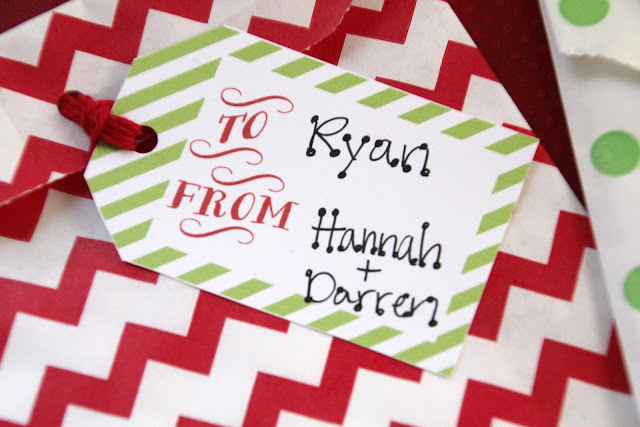 TO Ryan
FROM Hannah
+
Darren